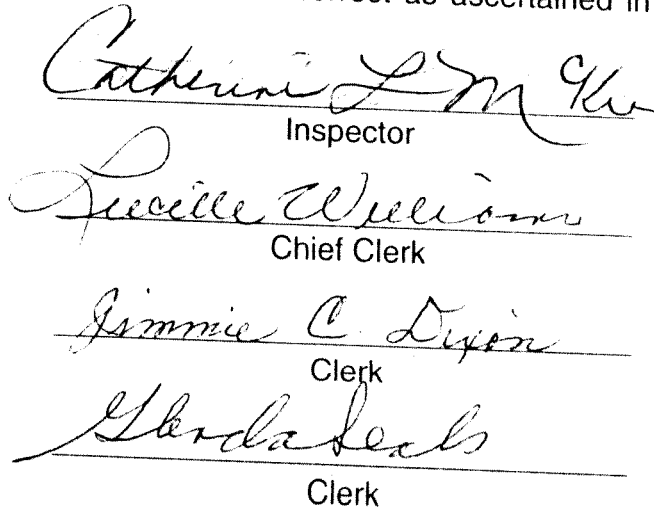 as ascertained in
Catherine L Mc
Inspector
Lucille Williams
Chief Clerk
Jimmie C. Dixon
Clerk
Glenda Seals
Clerk